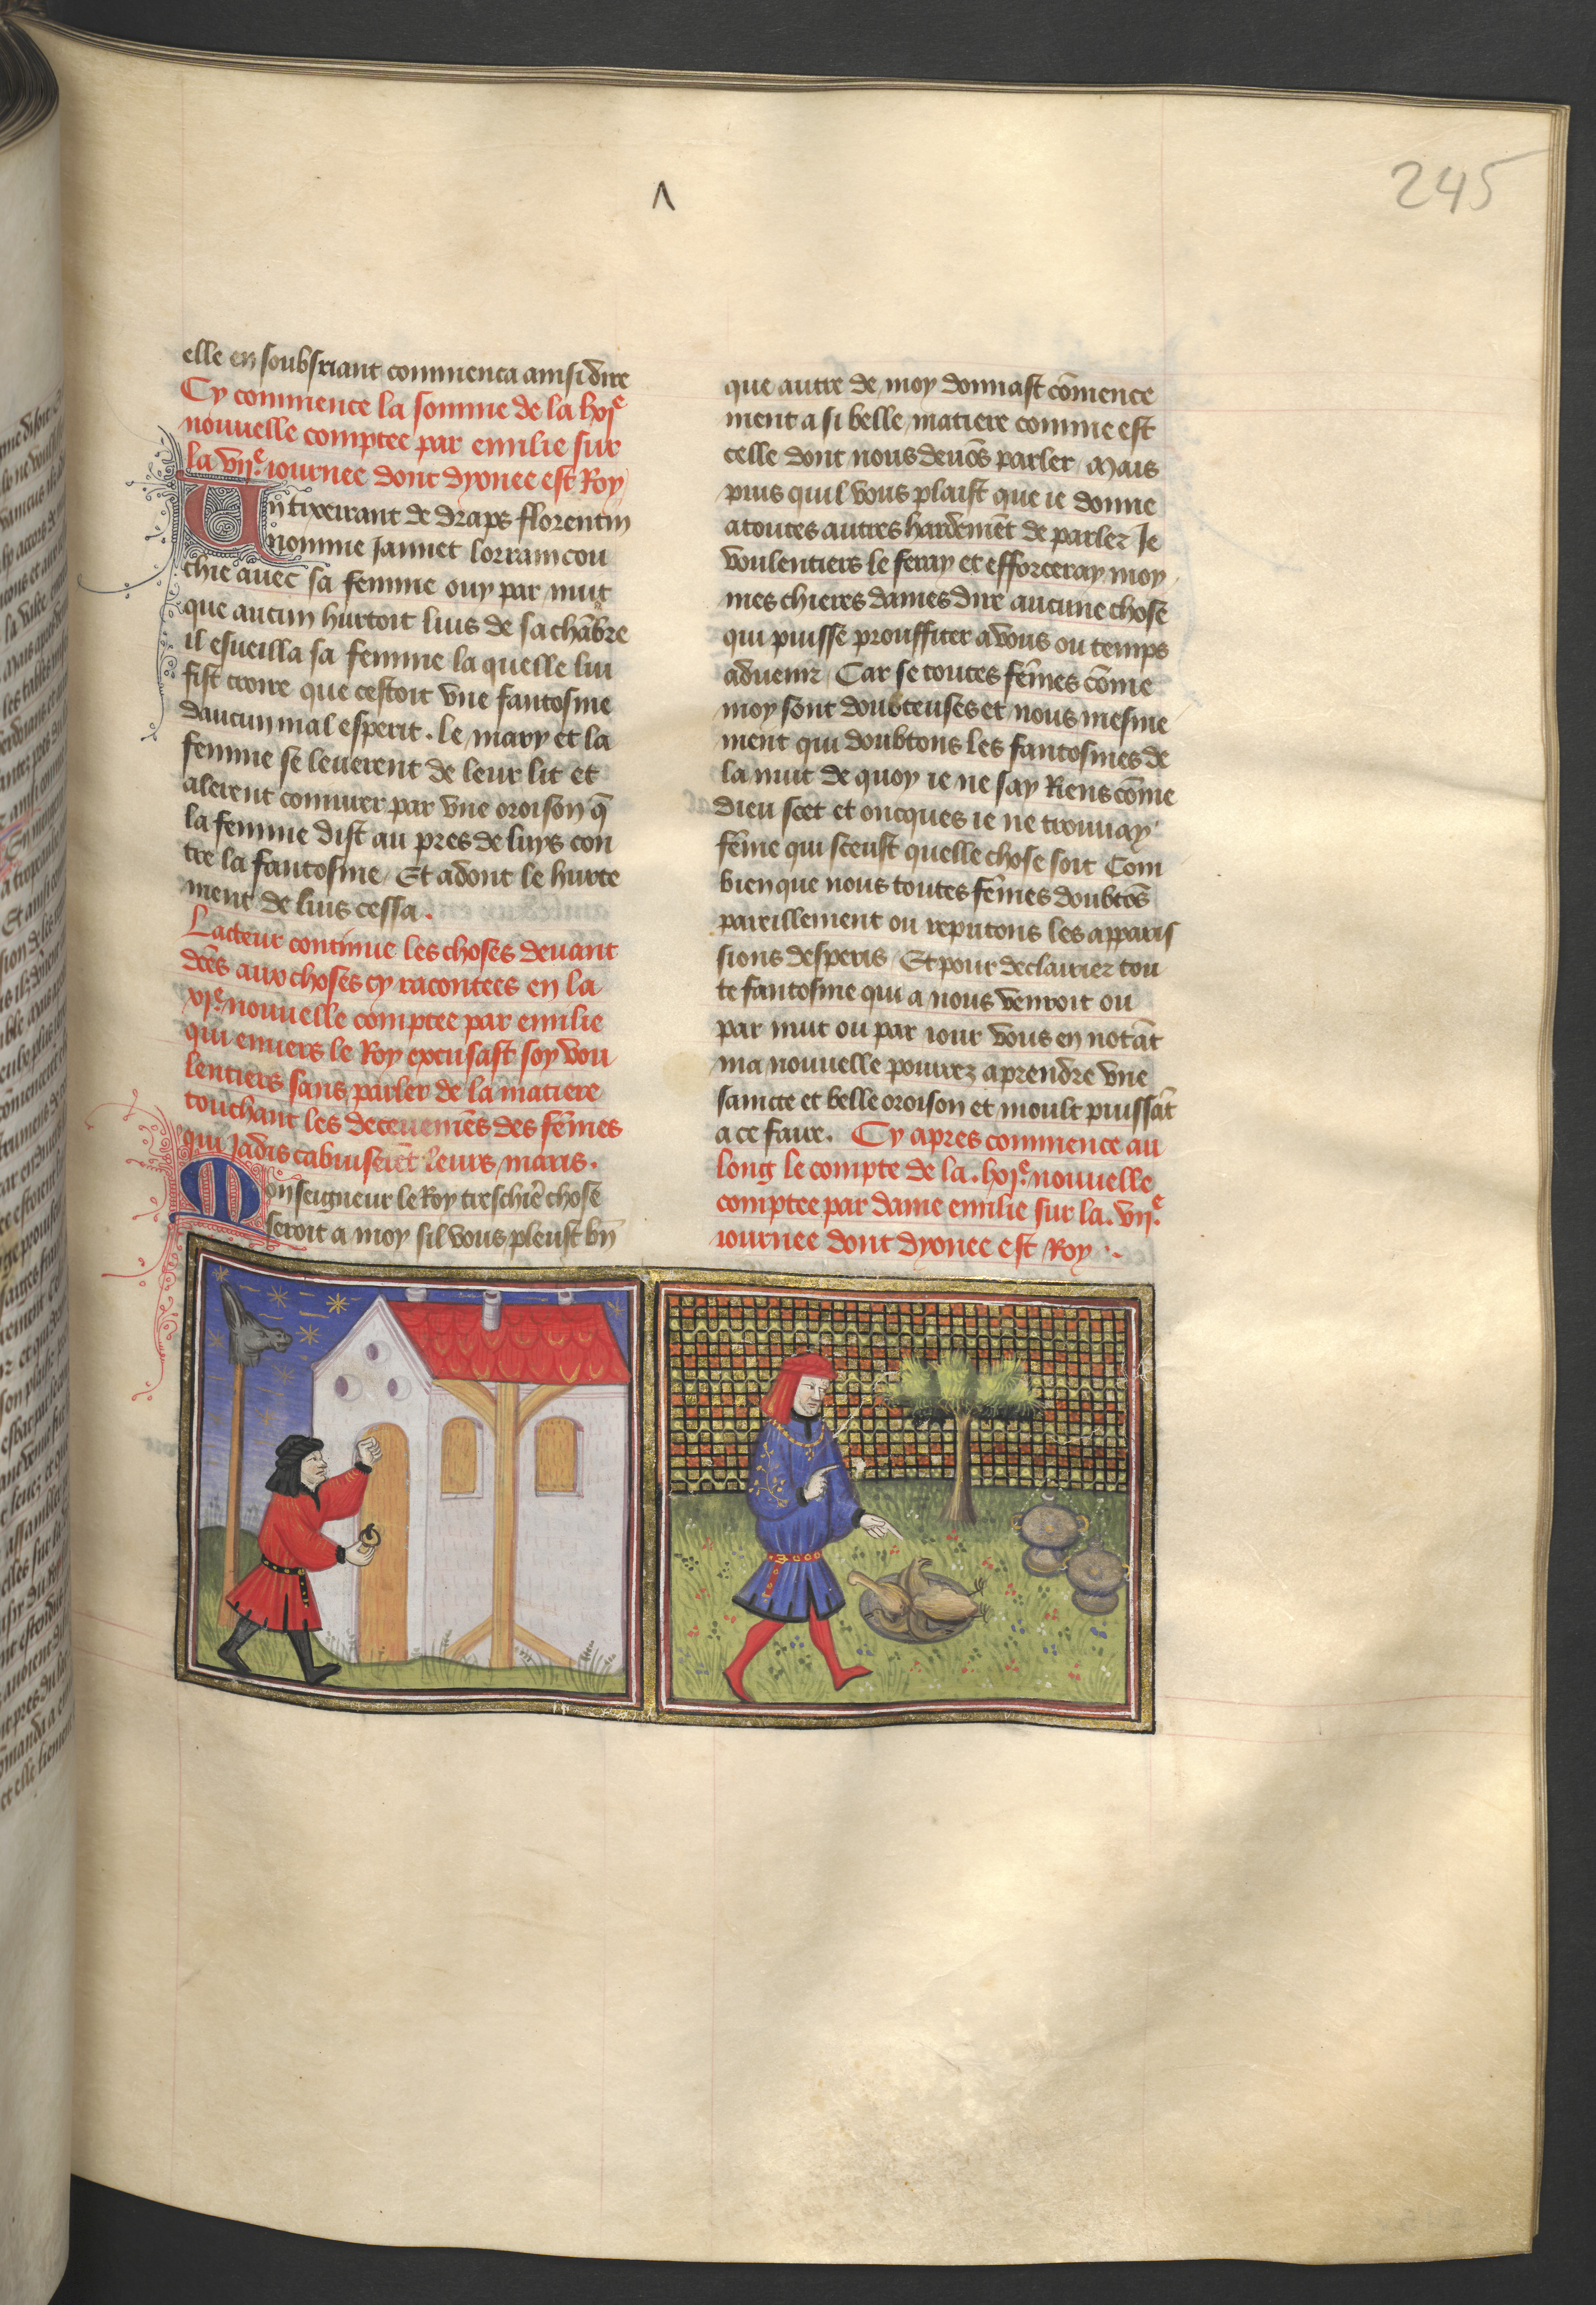 245
elle en soubsriant commenca ainsi dire
Cy commence la somme de la lxje
nouuelle comptee par emilie sur
la vije. iournee dont dyonee est Roy
Un tixeirant de draps florentin
nomme Jannet lorrain cou
chie auec sa femme ouy par nuit
que aucun hurtoit luis de sa chābre
il esueilla sa femme la quelle lui
fist croire que cestoit vne fantosme
daucun mal esperit. le mary et la
femme se leuerent de leur lit et
alerent coniurer par vne oroison q̄
la femme dist au pres de luys con
tre la fantosme / Et adont le hurte
ment de luis cessa.
Lacteur continue les choses deuant
dc̄es aux choses cy racontees en la
nouuelle comptee par emilie
qui enuers le Roy excusast soy vou
lentiers sans parler de la matiere
touchant les deceuemēs des fēmes
qui Jadis cabuiserēt leurs maris.
Monseigneur le Roy treschiere chose
seroit a moy sil vous pleust bn̄
que autre de moy donnast cōmence
ment a si belle matiere comme est
celle dont nous deuōs parler / Mais
puis quil vous plaist que ie donne
a toutes autres hardemēt de parler Je
voulentiers le feray et efforceray moy
mes chieres dames dire aucune chose
qui puisse prouffiter a vous ou temps
aduenir / Car se toutes fēmes cōme
moy sont doubteuses et nous mesme
ment qui doubtons les fantosmes de
la nuit de quoy ie ne say Riens cōme
dieu scet et oncques ie ne trouuay
fēme qui sceust quelle chose soit Com
bien que nous toutes fēmes doubtōs
pareillement ou reputons les apparis
sions desperis / Et pour declairier tou
te fantosme qui a nous venroit ou
par nuit ou par iour vous en notāt
ma nouuelle pourrez aprendre vne
saincte et belle oroison et moult puissāt
a ce faire. Cy apres commence au
long le compte de la. lxje. nouuelle
comptee par dame emilie sur la. vije.
iournee dont dyonee est Roy